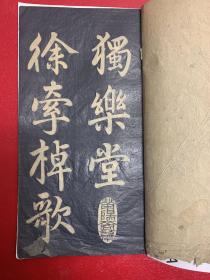 獨樂堂
徐牽棹歌